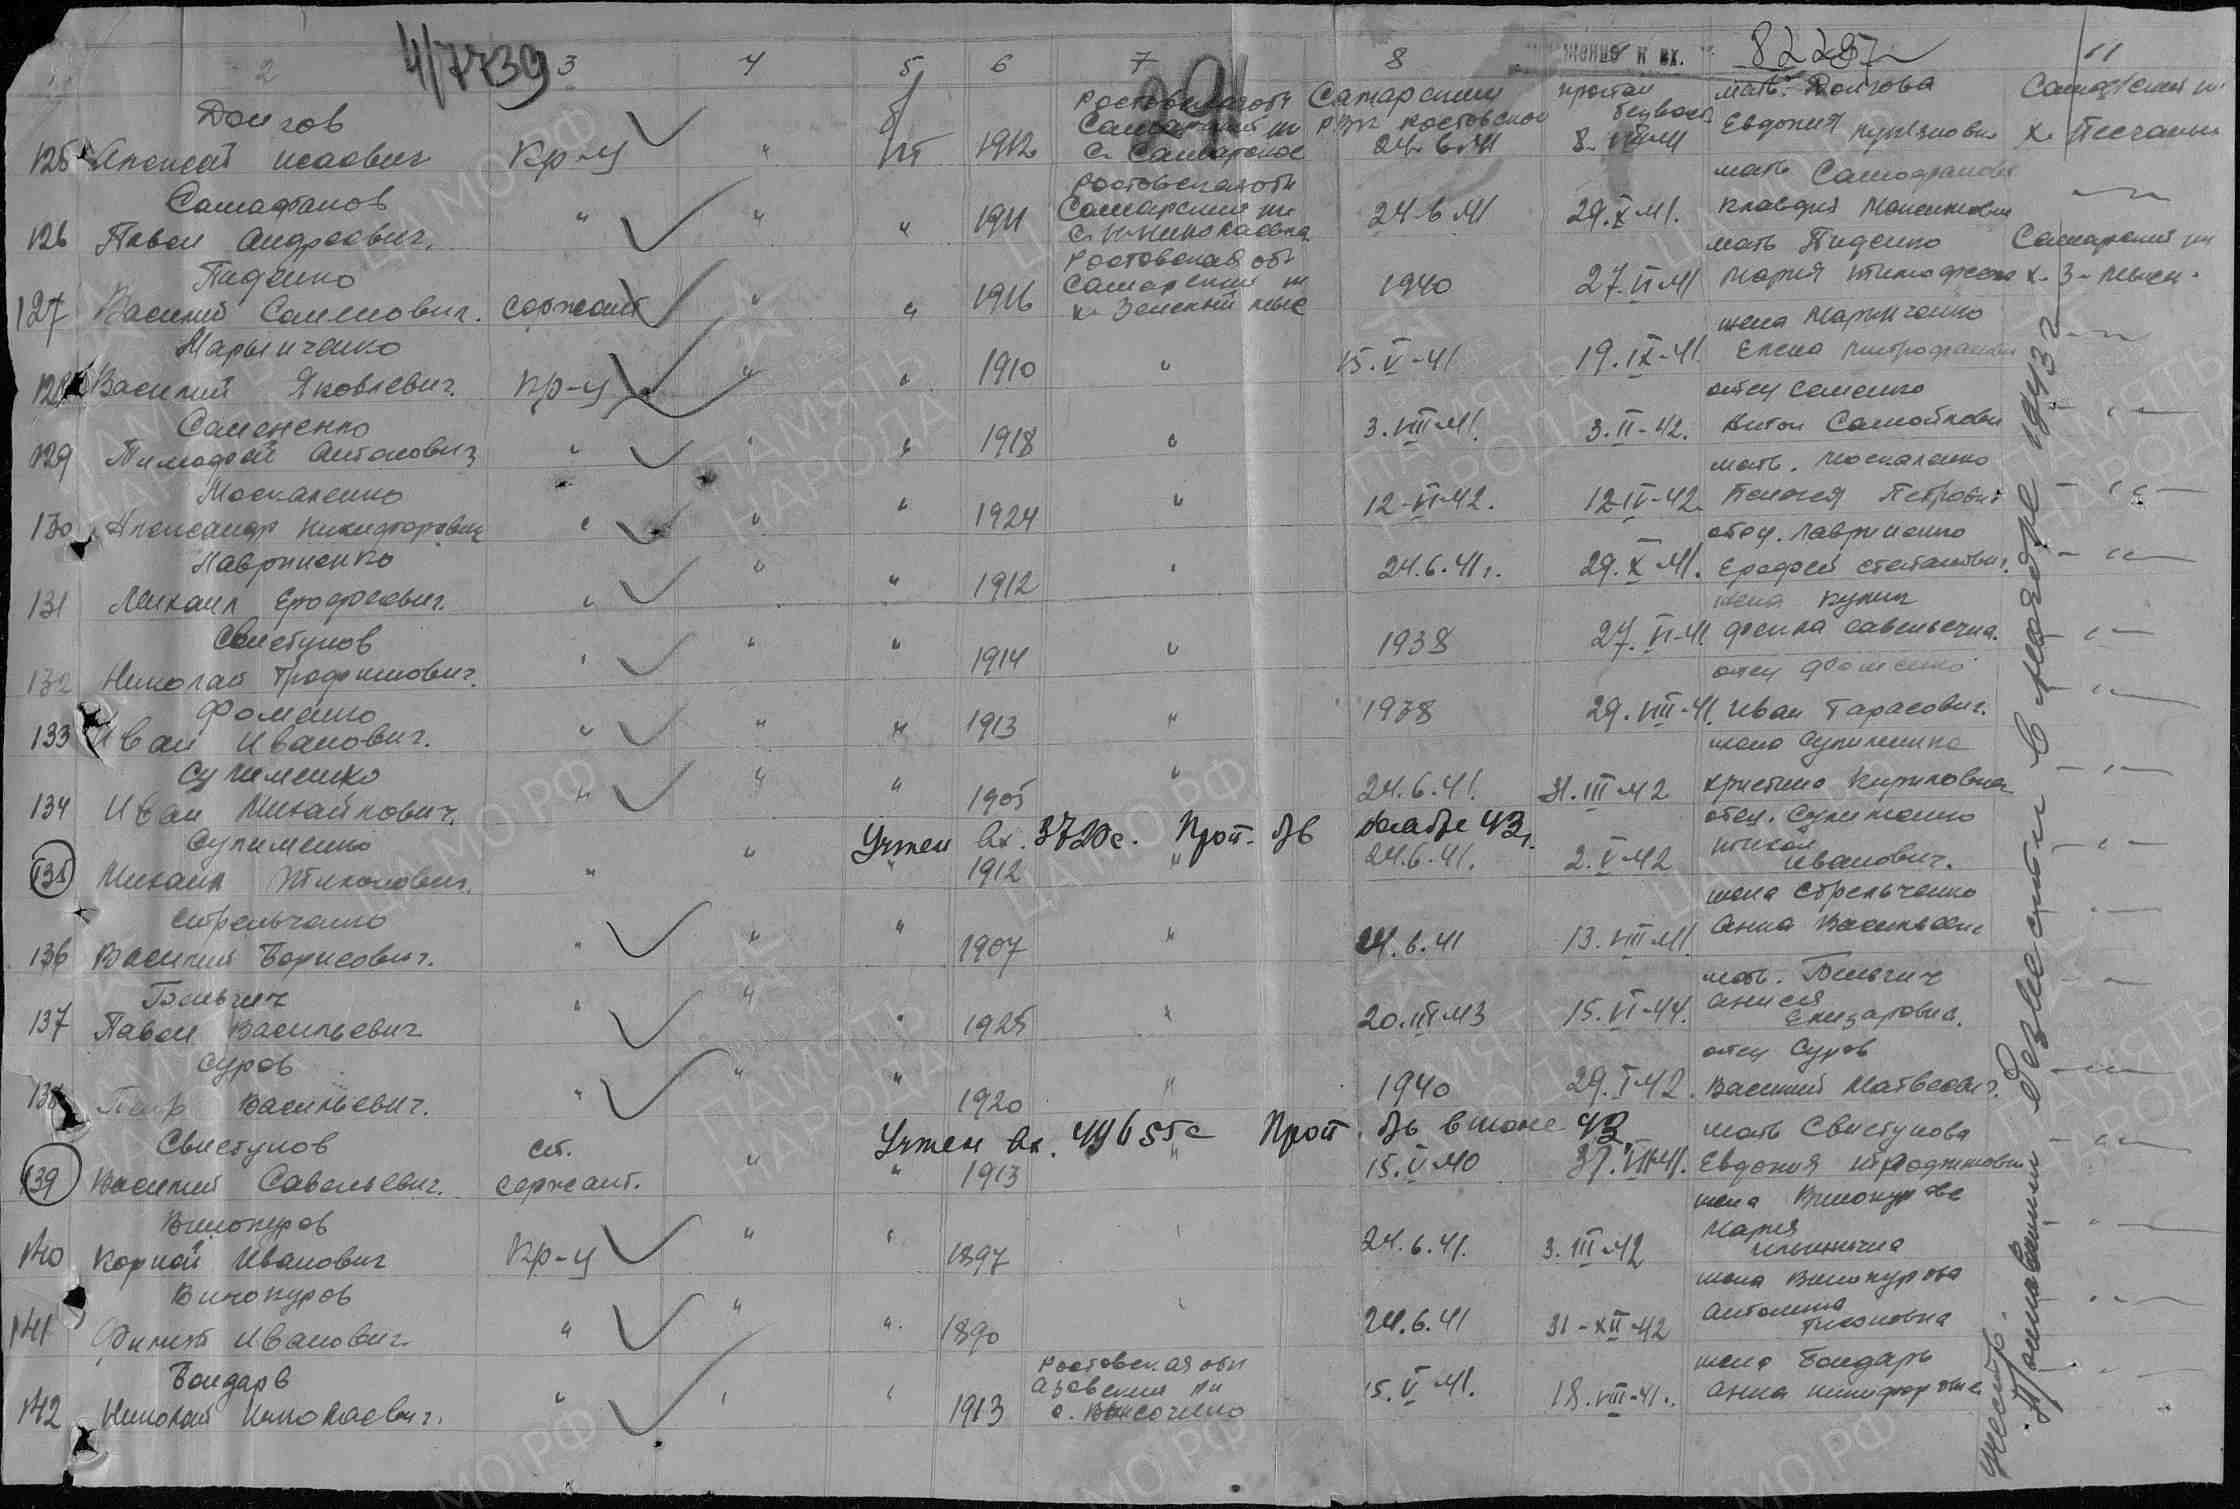 4/7739
82287
2 3 4 5 6 7 8 11
Долгов
125 Алексей Исаевич Кр-ц " 1912 Ростовская обл Самарский
с. Самарское 24-6-41 мать Долгова
Евдокия Самарский
Самафалов
126 Павел Андреевич. " " " 1911 Ростовская обл
Самарский 24-6-41 29.X-41. мать
Клавдия
Пиденко
127 Василий Семенович. сержант " " 1916 Ростовская обл
Самарский
х. Зеленый мыс 1940 27.VI-41 мать Пиденко
Мария Самарский
Марынченко
128 Василий Яковлевич. кр-ц " " 1910 " 15.V-41 19.IX-41 жена Марынченко
Елена
Семененко
129 Тимофей Антонович " " " 1918 " 3.VIII-41. 3.II-42. отец
Антон Самойлович
Москаленко
130 Александр Никифорович " " " 1924 " 12-VI-42. 12-IV-42. мать. Москаленко
Пелагея
Лавриненко
131 Михаил Ерофеевич. " " " 1912 " 24.6.41г. 29.X-41. отец. Лавриненко
Ерофей Степанович.
Свистунов
132 Николай Трофимович. " " " 1914 " 1938 27.VI-41. жена
Савельевна.
Фоменко
133 Иван Иванович. " " " 1913 " 1938 29.VIII-41. отец Фоменко
Иван Тарасович.
Сулименко
134 Иван Михайлович. " " " 1905 " 24.6.41. 31.III-42 жена
Христина Кириловна
Учтен вх. 3720с. Проп. б/в ноябре 43г.
Сулименко
135 Михаил Тихонович. " " " 1912 " 24.6.41. 2.V-42 отец. Сулименко
Тихон
Иванович.
Стрельченко
136 Василий Борисович. " " " 1907 " 24.6.41 13.VIII-41. жена Стрельченко
Анна Васильевна
Бельгич
137 Павел Васильевич " " " 1925 " 20.III-43 15.VI-44. мать. Бельгич
Анисия
Елизаровна.
Суров
138 Петр Васильевич. " " " 1920 " 1940 29.I-42. отец Суров
Василий Матвеевич.
Учтен вх. Проп. б/в в июне 43
Свистунов
139 Василий Савельевич. ст.
сержант. " " 1913 " 15.V-40 мать Свистунова
Евдокия
Винокуров
140 Корней Иванович Кр-ц " " 1897 24.6.41. 3.III-42 жена Винокурова
Мария
Ильинична
Винокуров
141 Филипп Иванович. " " " 1890 24.6.41 31-XII-42 жена Винокурова
Антонина
Тихоновна
Бондарь
142 Николай Николаевич. " " " 1913 Ростовская обл
Азовский
с. Высочино 15.V-41. 18.VIII-41. жена Бондарь
Анна Никифоровна
учесть.
Пропавшим безвести в ноябре 1943г